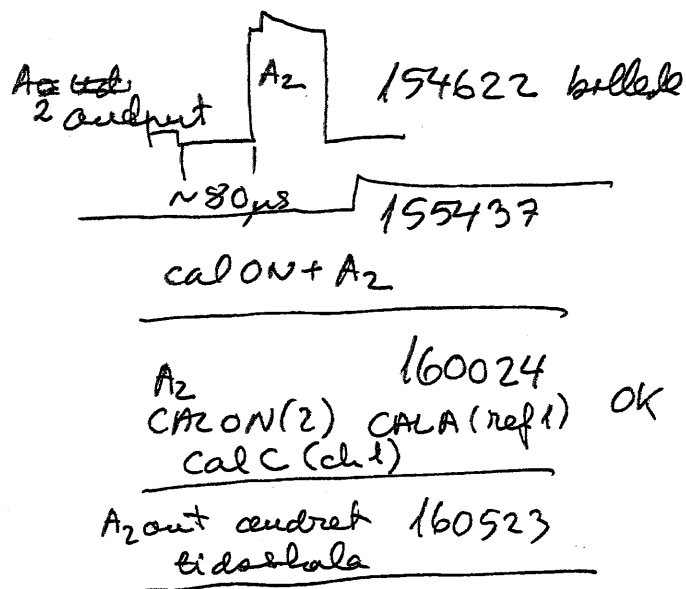 A2 154622
2 output
~80µs 155437
cal ON + A2
A2 160024
CALON(2) CALA (ref 1) OK
Cal C (ch 1)
A2 out ændret 160523
tidsskala